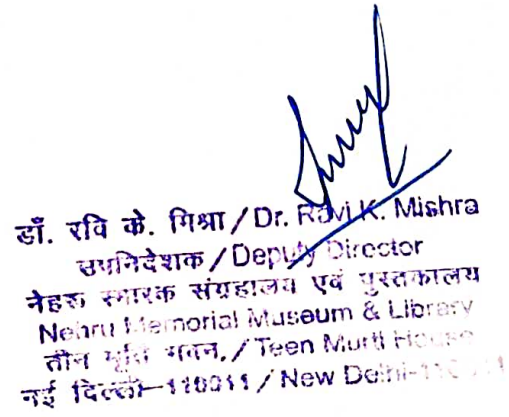 डॉ. रवि के. मिश्रा / Dr. Ravi K. Mishra
उपनिदेशक / Deputy Director
नेहरू स्मारक संग्रहालय एवं पुस्तकालय
Nehru Memorial Museum & Library
तीन मूर्ति भवन, / Teen Murti House
नई दिल्ली-110011 / New Delhi-110011